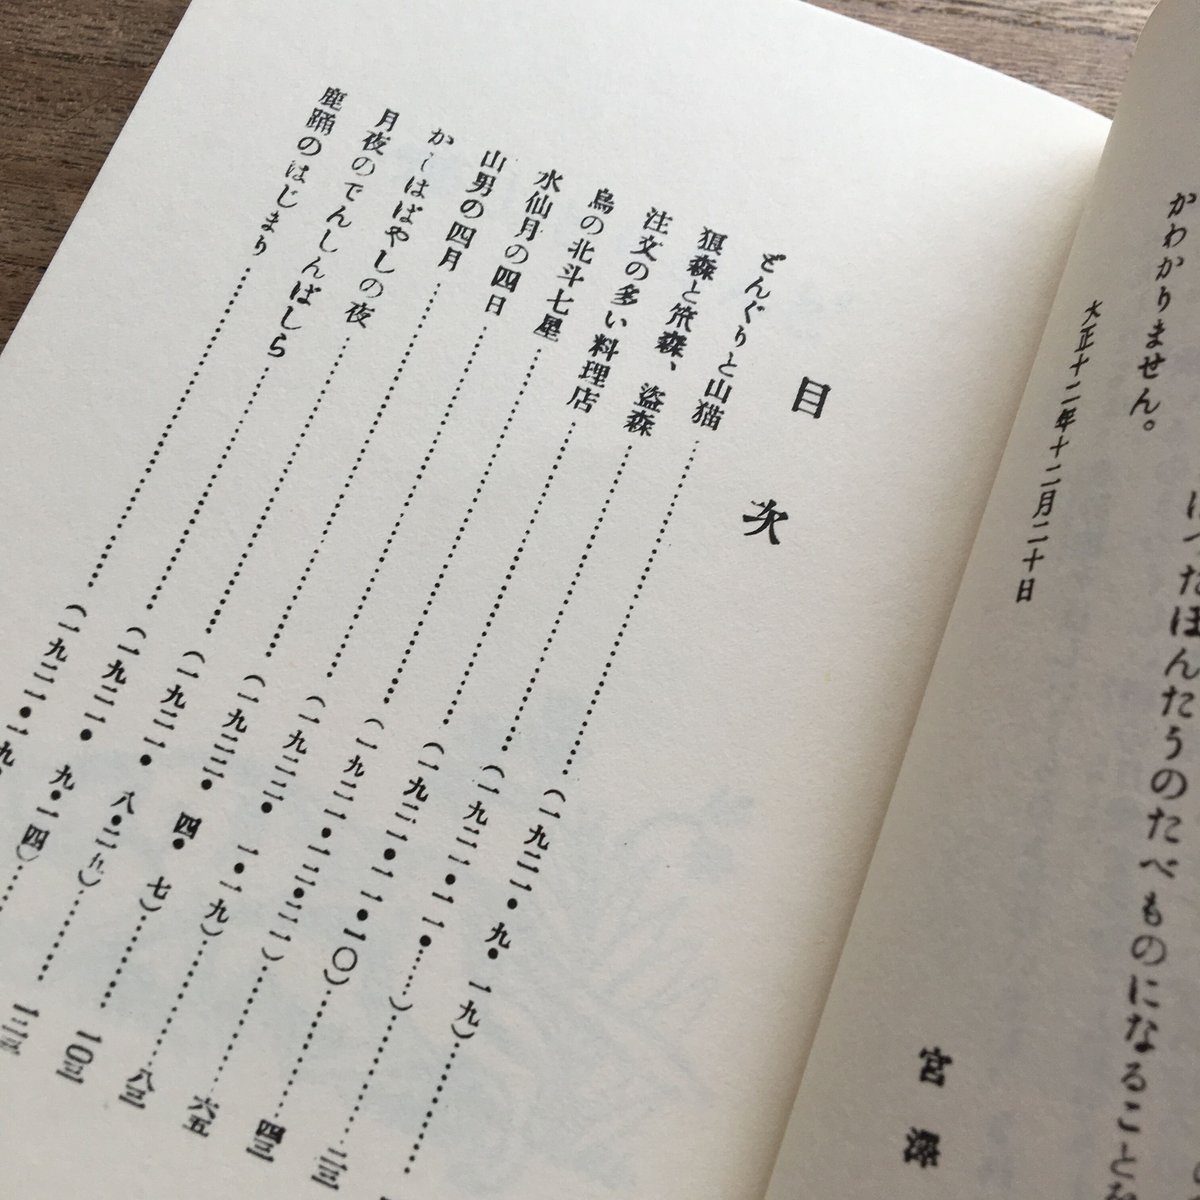 はつたほんたうのたべものになること
かわかりません。
大正十二年十二月二十日
宮澤
目次
どんぐりと山猫………(一九二一・九・一九)………
狼森と笊森、盗森………(一九二一・一一・……)………
注文の多い料理店………(一九二一・一一・一〇)………
烏の北斗七星………(一九二一・一二・二一)………
水仙月の四日………(一九二二・一・一九)………六五
山男の四月………(一九二二・四・七)………八三
かしはばやしの夜………(一九二一・八・二五)………一〇三
月夜のでんしんばしら………(一九二一・九・一四)………
鹿踊のはじまり………(一九二一・九・